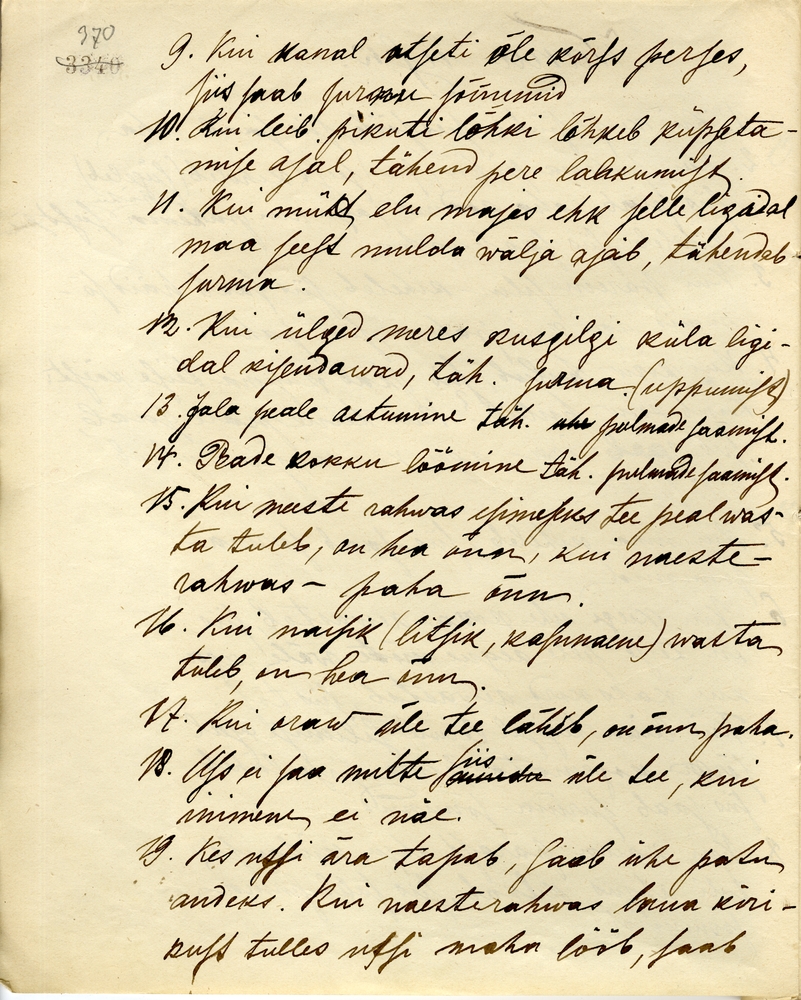 370
3340
9. Kui kanal otseti õle kõrs perses,
siis saab surma sõnumid
10. Kui leib pikuti lõhki lõhkeb küpseta-
mise ajal, tähend pere lahkumist.
11. Kui mutt elu majas ehk selle ligidal
maa seest mulda wälja ajab, tähendab
surma.
12. Kui ülged meres kusgilgi küla ligi-
dal kisendawad, täh. surma (uppumist)
13. Jala peale astumine täh. pulmade saamist.
14. Peade kokku löömine täh. pulmade saamist.
15. Kui meeste rahwas esimeseks tee peal was-
ta tuleb, on hea õnn, kui naeste-
rahwas – paha õnn.
16. Kui naisik (litsik, kasunaene) wasta
tuleb, on hea õnn.
17. Kui oraw üle tee läheb, on õnn paha.
18. Uss ei saa mitte siis üle tee, kui
inimene ei näe.
19. Kes ussi ära tapab, saab ühe patu
andeks. Kui naesterahwas laua kiri-
kust tulles ussi maha lööb, saab